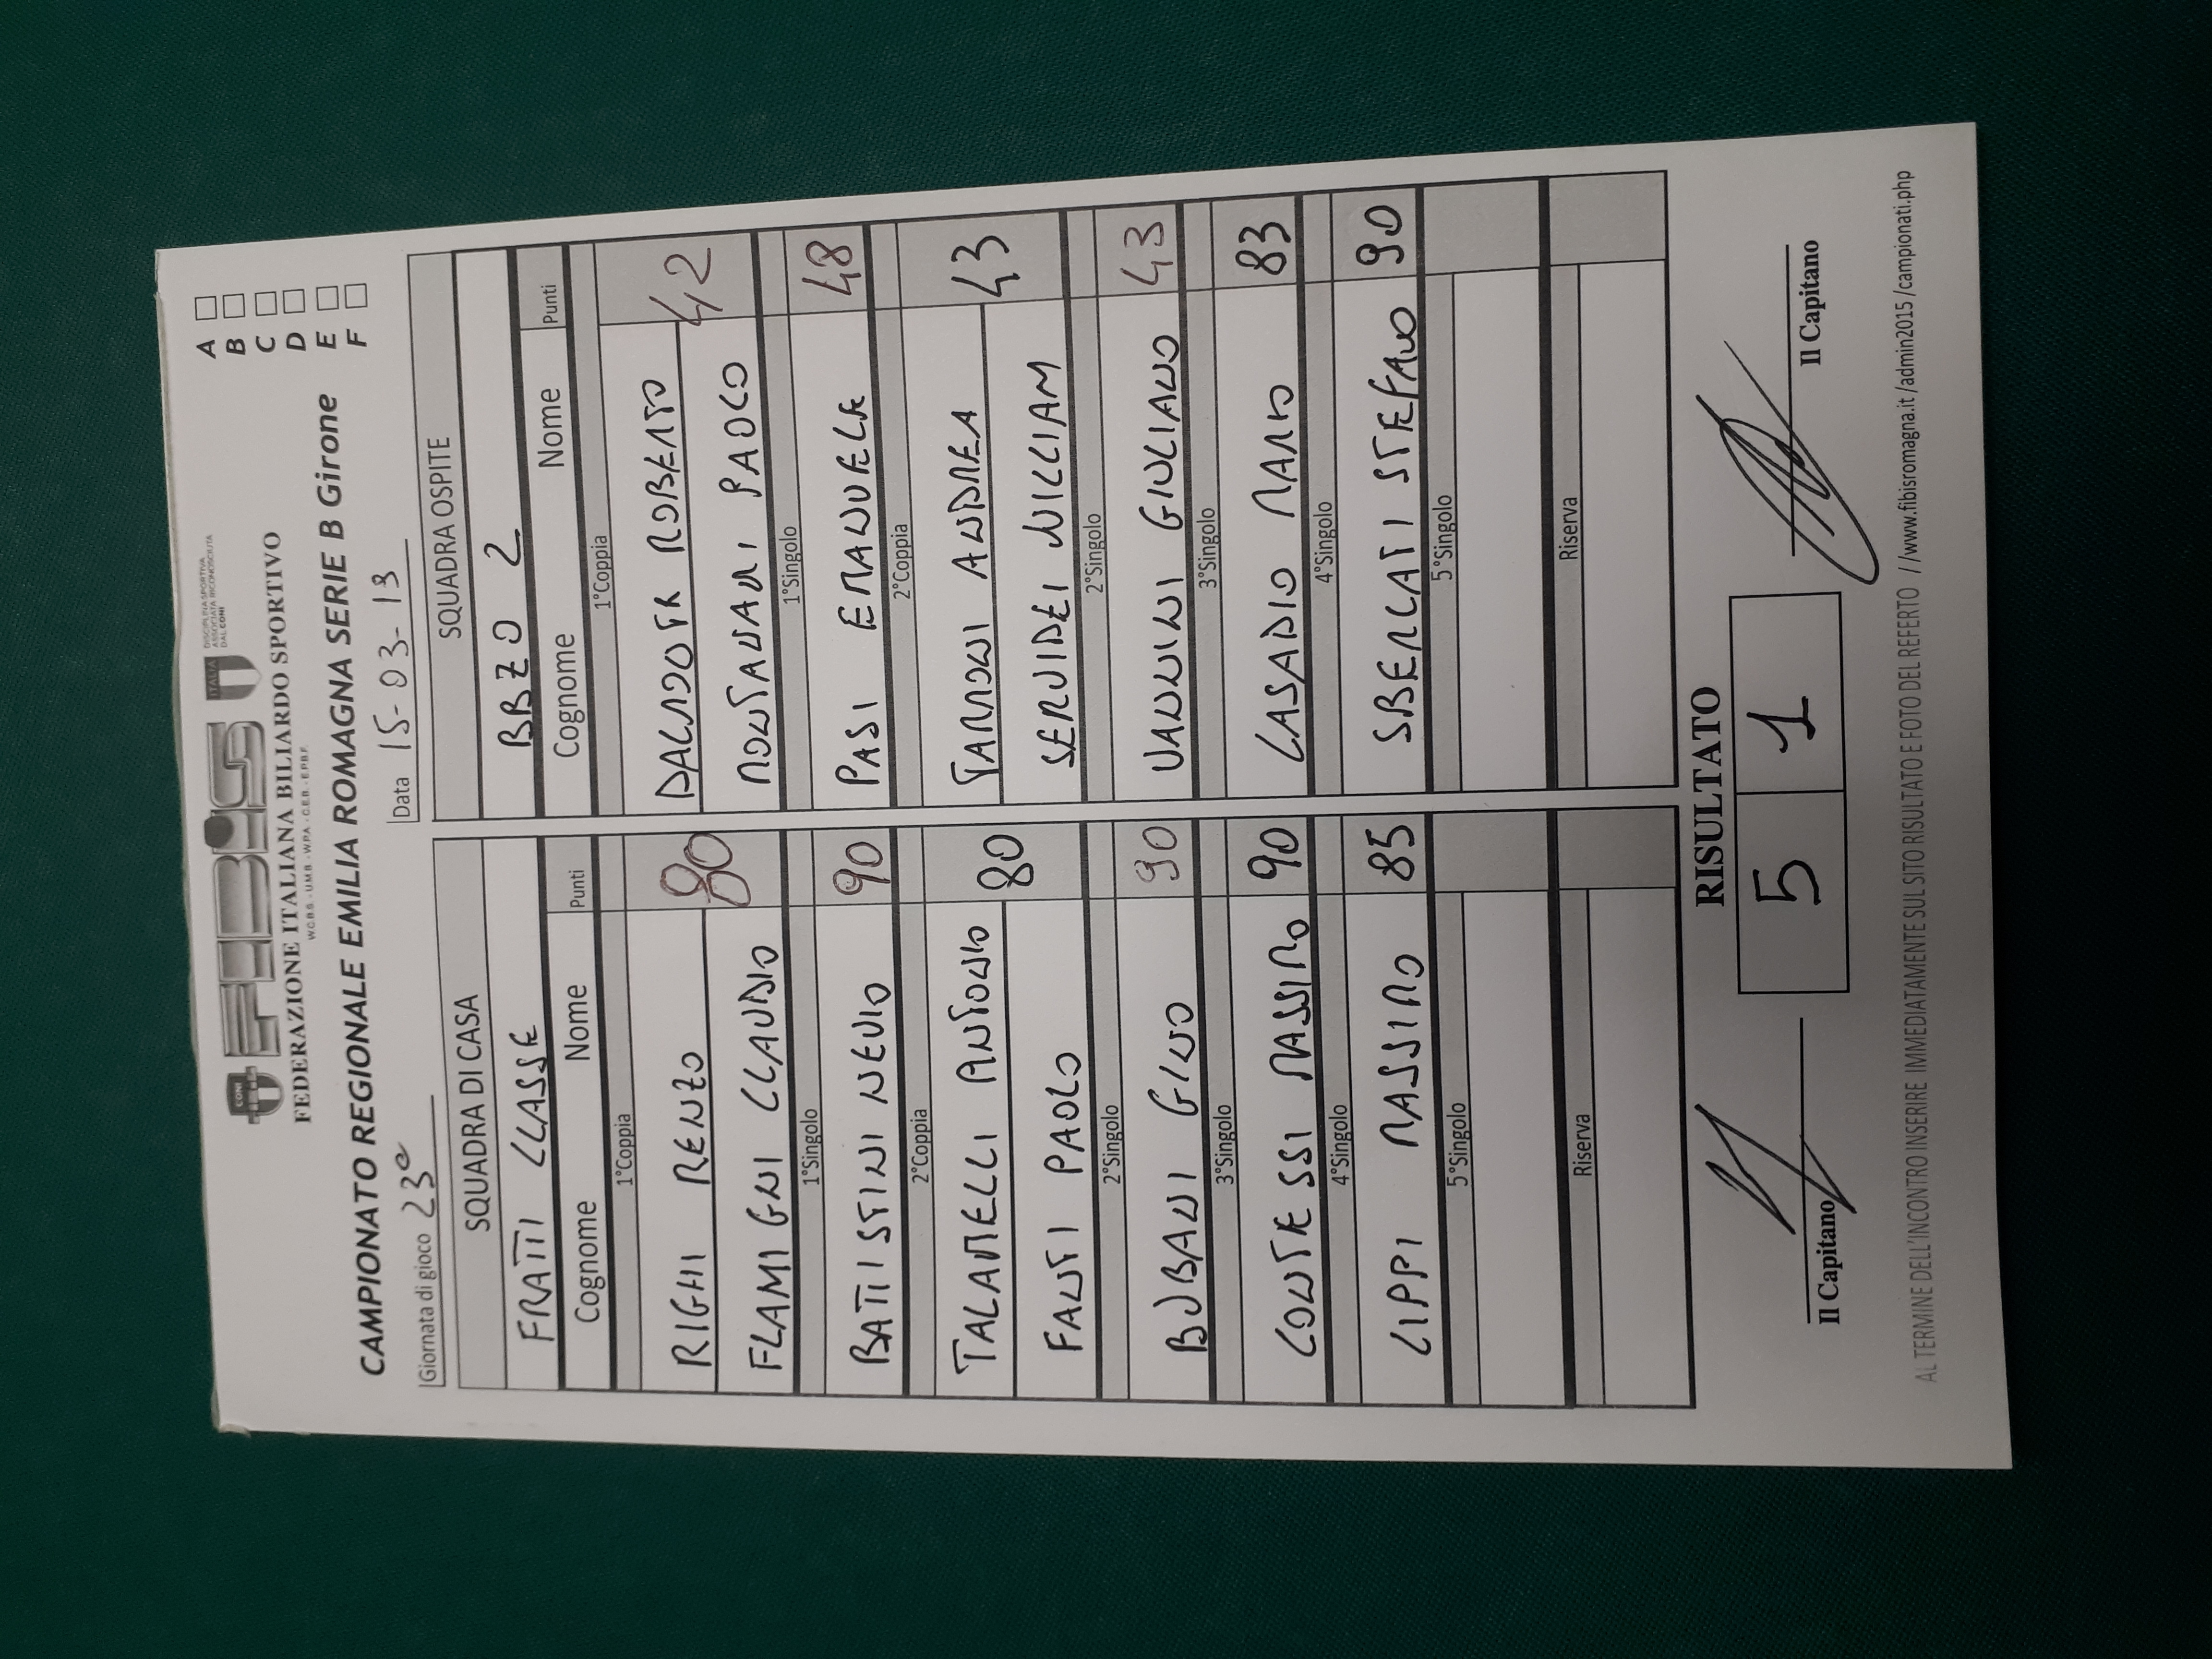 CONI
FEDERAZIONE ITALIANA BILIARDO SPORTIVO
W.C.B.S. - U.M.B. - W.P.A. - C.E.B. - E.P.B.F.
ITALIA
DISCIPLINA SPORTIVA
ASSOCIATA RICONOSCIUTA
DAL CONI
CAMPIONATO REGIONALE EMILIA ROMAGNA SERIE B Girone
A
B
C
D
E
F
Giornata di gioco 23°
Data 15-03-19
SQUADRA DI CASA
SQUADRA OSPITE
FRATTI CLASSE
BBZO 2
Cognome Nome Punti
Cognome Nome Punti
1°Coppia
1°Coppia
RIGHI RENZO 80
ROBERTO 42
FLAMIGNI CLAUDIO
MONTANARI PAOLO
1°Singolo
1°Singolo
BATTISTINI NEVIO 90
PASI EMANUELE 48
2°Coppia
2°Coppia
TALAMELLI ANTONIO 80
TARRONI ANDREA 43
FANTI PAOLO
SERVIDEI WILLIAM
2°Singolo
2°Singolo
BUBANI GINO 90
VANNINI GIULIANO 43
3°Singolo
3°Singolo
CONTESSI MASSIMO 90
CASADIO MARIO 83
4°Singolo
4°Singolo
LIPPI MASSIMO 85
SBERLATI STEFANO 90
5°Singolo
5°Singolo
Riserva
Riserva
RISULTATO
5 1
Il Capitano
Il Capitano
AL TERMINE DELL'INCONTRO INSERIRE IMMEDIATAMENTE SUL SITO RISULTATO E FOTO DEL REFERTO //www.fibisromagna.it/admin2015/campionati.php